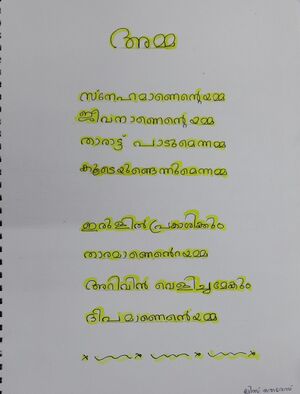 അമ്മ
സ്നേഹമാണെന്റെയമ്മ
ജീവനാണെന്റെയമ്മ
താരാട്ട് പാടുമെന്നമ്മ
കൂടെയുണ്ടെന്നുമെന്നമ്മ
ഇരുളിൽ പ്രകാശിക്കും
താരമാണെന്റെയമ്മ
അറിവിൻ വെളിച്ചമേകും
ദീപമാണെന്റെയമ്മ